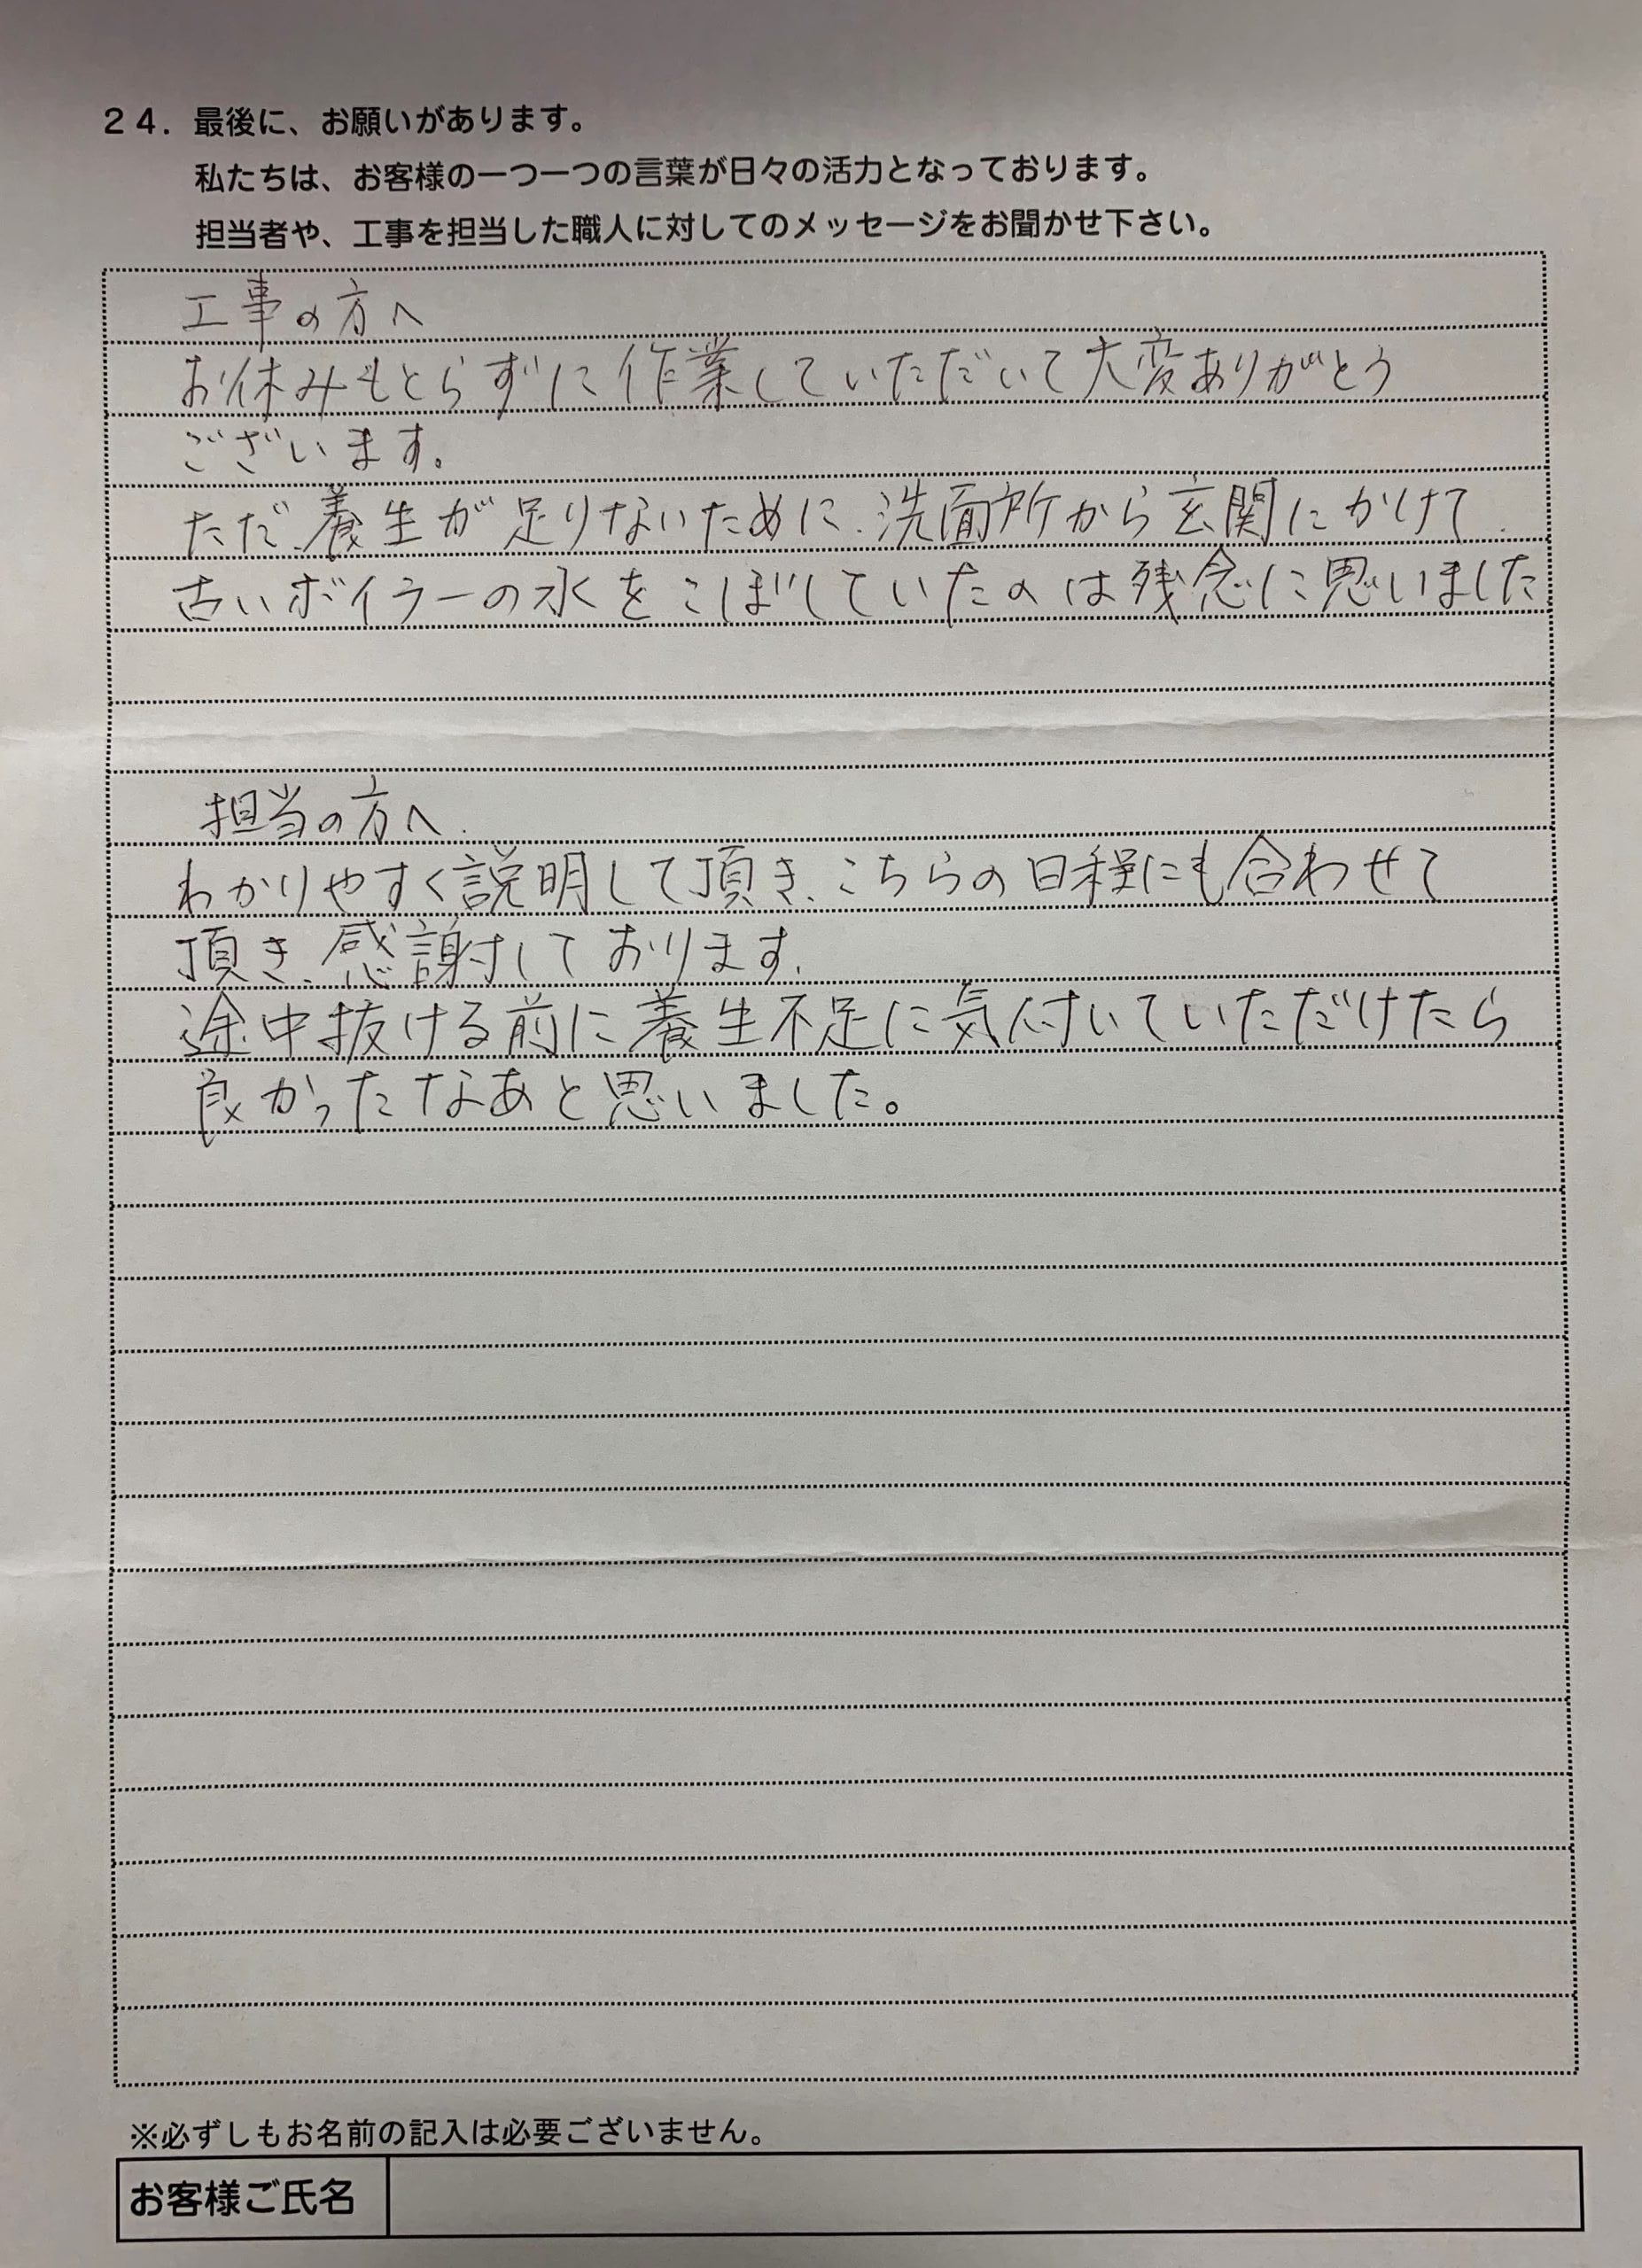 24. 最後に、お願いがあります。
私たちは、お客様の一つ一つの言葉が日々の活力となっております。
担当者や、工事を担当した職人に対してのメッセージをお聞かせ下さい。
工事の方へ
お休みもとらずに作業していただいて大変ありがとう
ございます。
ただ、養生が足りないために、洗面所から玄関にかけて、
古いボイラーの水をこぼしていたのは残念に思いました
担当の方へ.
わかりやすく説明して頂き、こちらの日程にも合わせて
頂き、感謝しております.
途中抜ける前に養生不足に気付いていただけたら
良かったなあと思いました。
※必ずしもお名前の記入は必要ございません。
お客様ご氏名